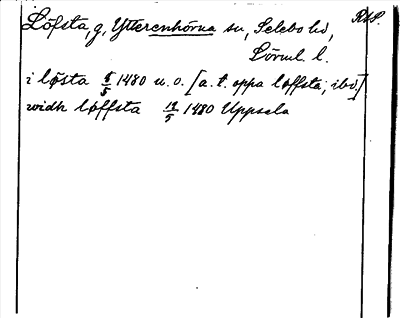 Löfsta, g, Ytterenhörna sn, Selebo hd, RAP.
Sörml. l.
i løsta 8/5 1480 u. o. [a. t. oppa løffsta; ibid.]
widh løffsta 12/5 1480 Uppsala